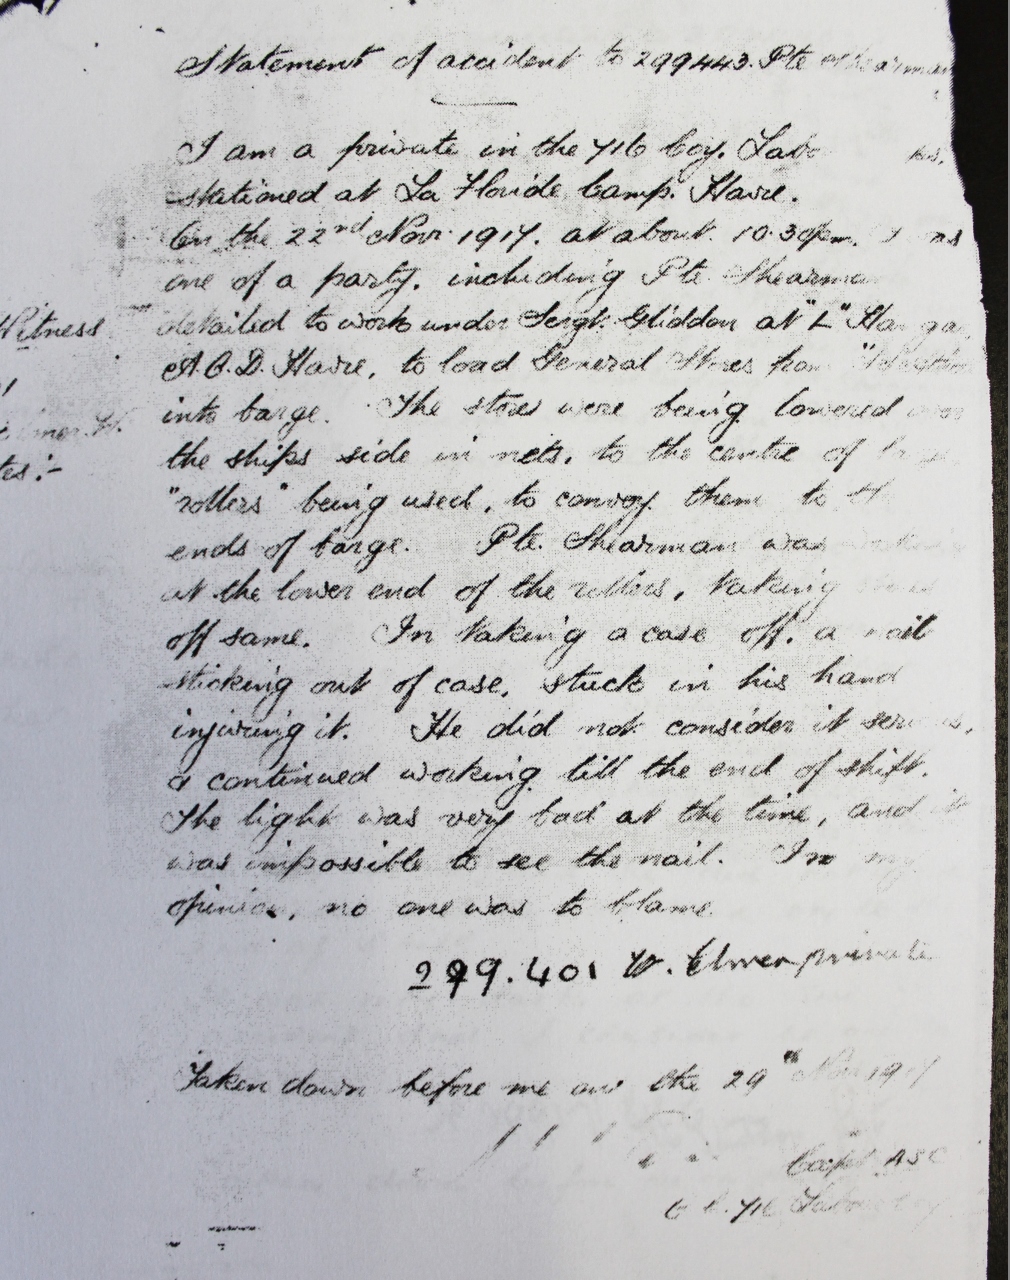 Statement of accident to 299443. Pte Shearman
I am a private in the 716 Coy. Labo
stationed at La Floride Camp. Havre.
On the 22nd Novr. 1917. at about. 10.30pm. I was
one of a party, including Pte Shearman
Witness
detailed to work under Sergt. Gliddon at "L" Hangar
A.O.D. Havre, to load General Stores from
into barge. The stores were being lowered over
the ships side in nets, to the centre of
"rollers" being used, to convoy them to th
ends of barge. Pte. Shearman was working
at the lower end of the rollers, taking
off same. In taking a case off, a nail
sticking out of case, stuck in his hand
injuring it. He did not consider it serious,
a continued working till the end of shift.
The light was very bad at the time, and it
was impossible to see the nail. In my
opinion, no one was to blame.
299.401 W. Elmer private
Taken down before me on the 29th Nov 1917
Capt ASC
O.C. 716 Labour Coy